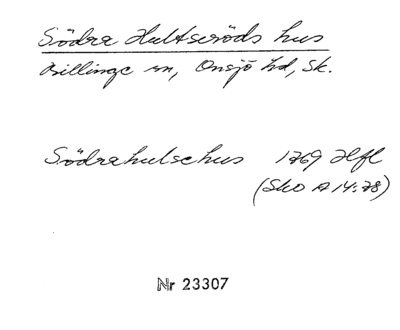 Södra Hultseröds hus
Billinge sn, Onsjö hd, Sk.
Södrahulsehus 1769 Hfl
(Sko A 14:78)
Nr 23307